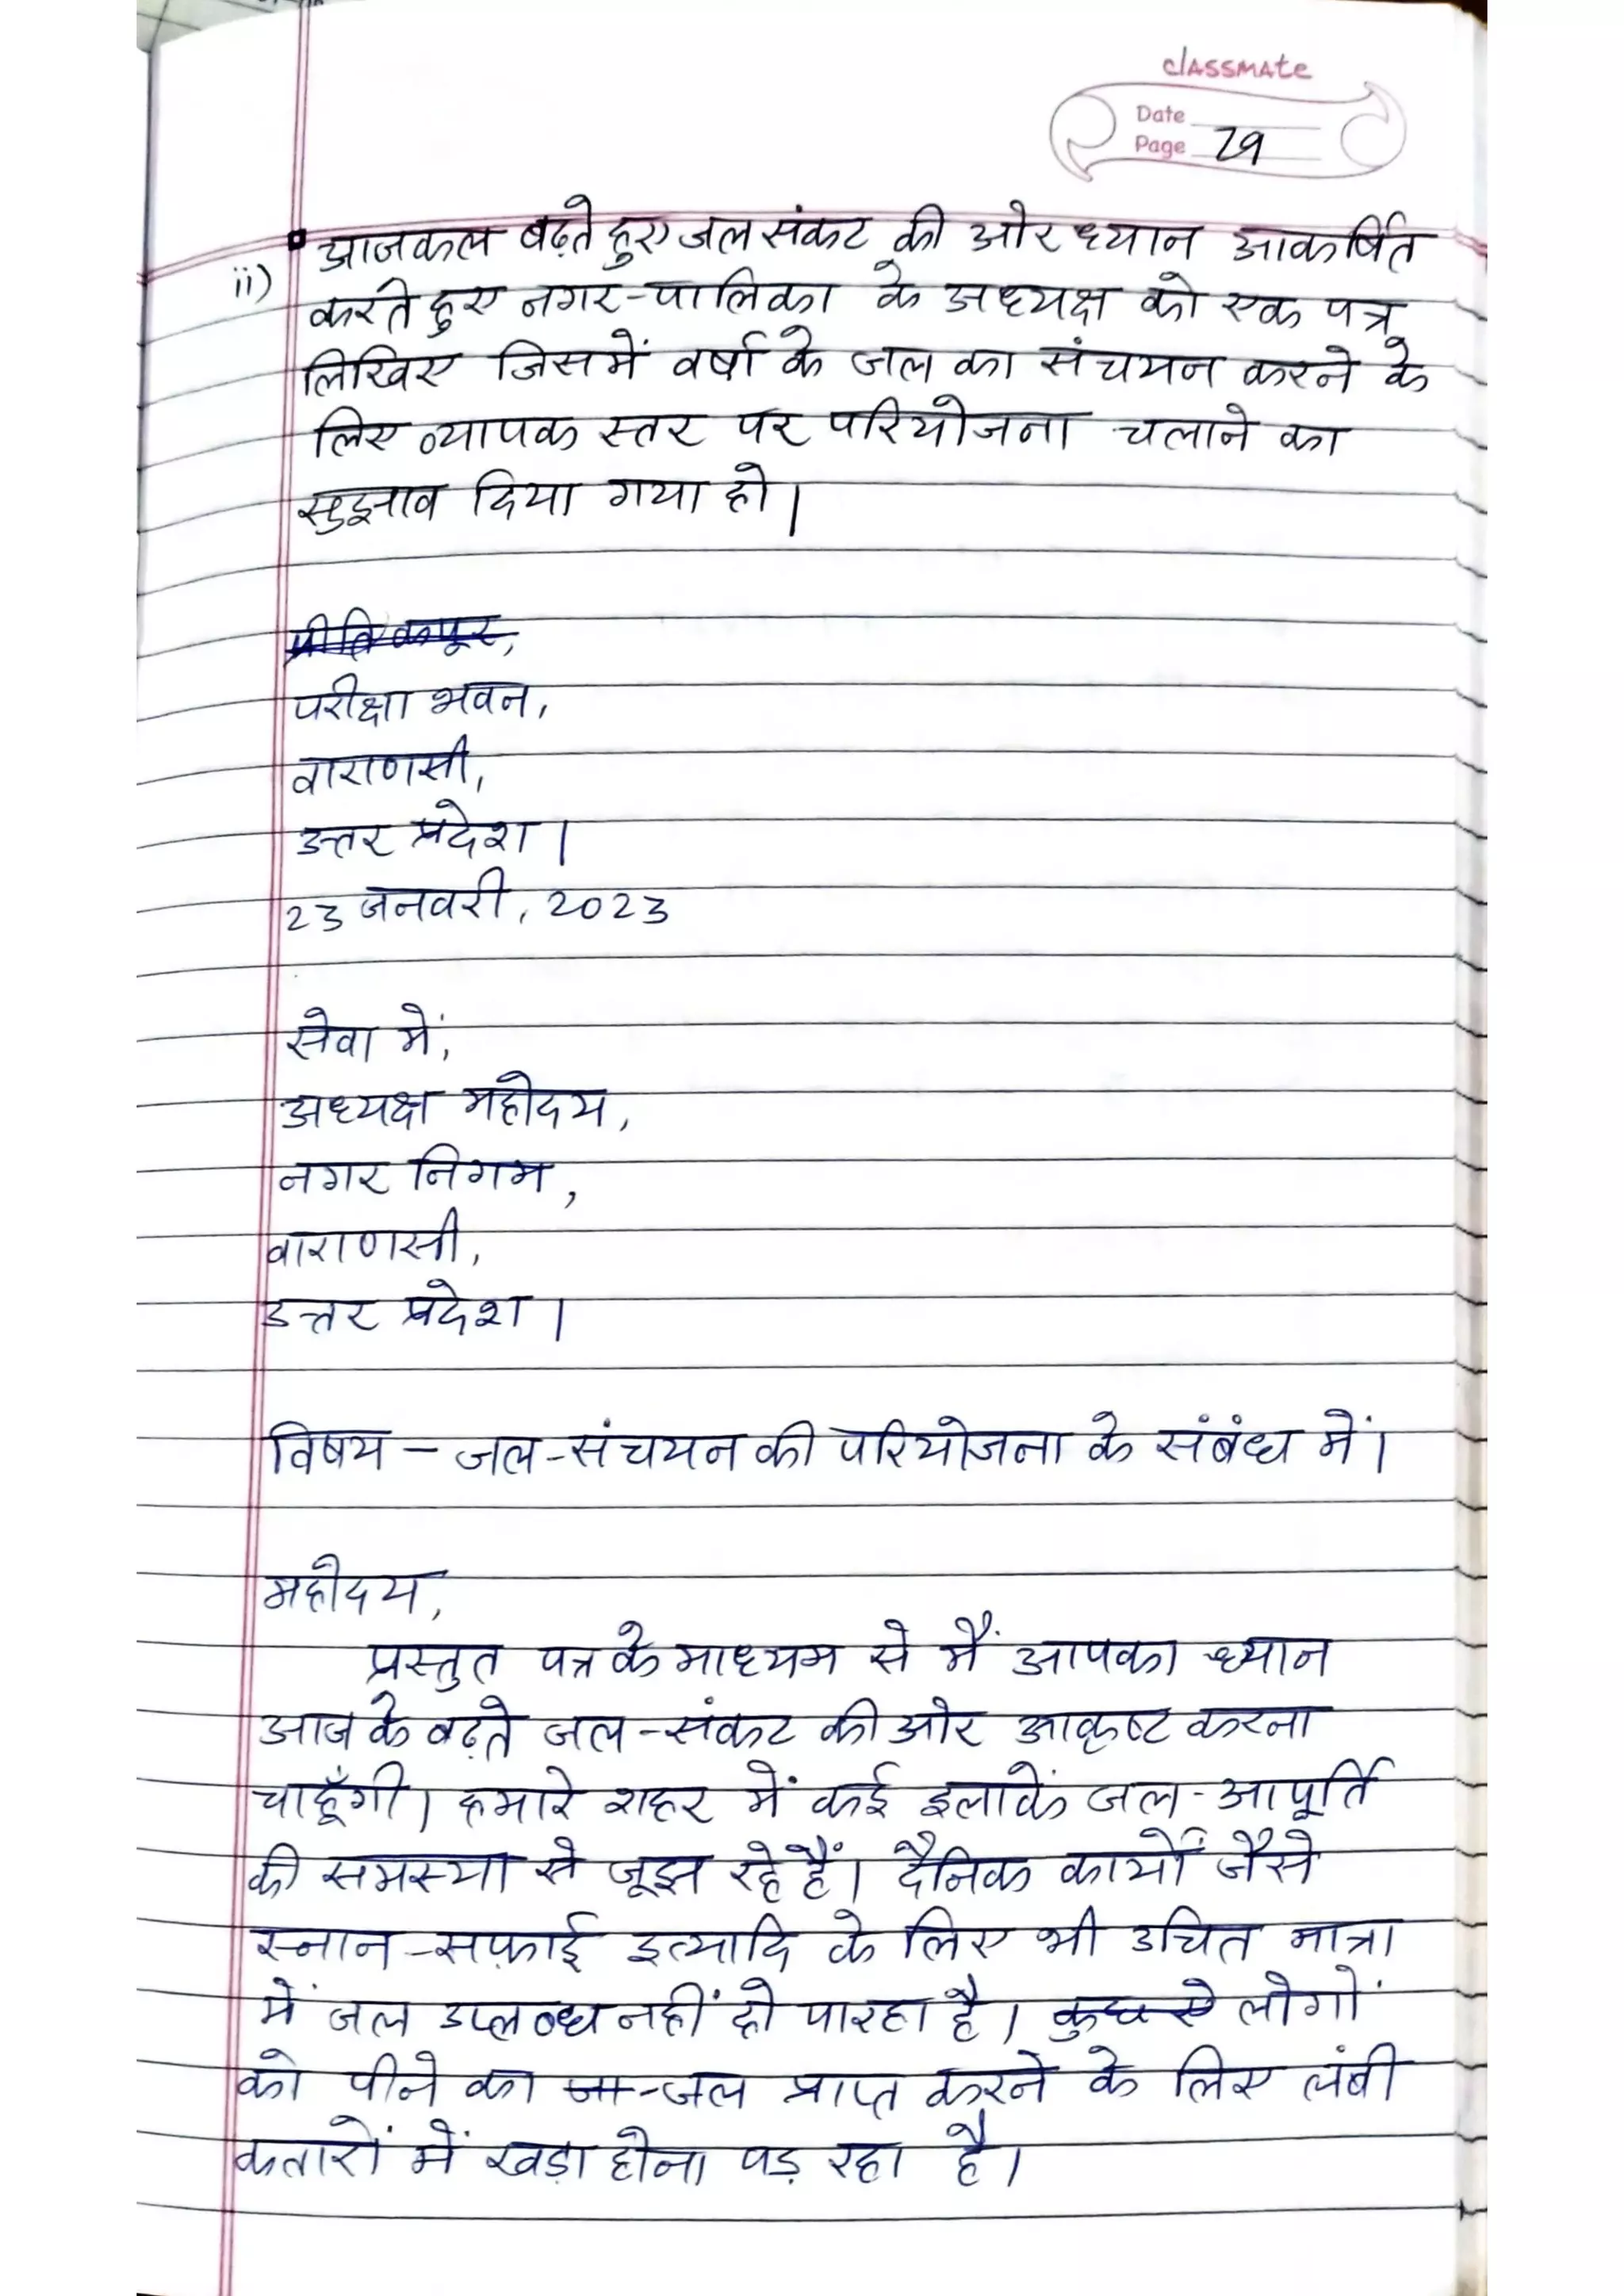 classmate
Date
Page 29
ii) आजकल बढ़ते हुए जल संकट की ओर ध्यान आकर्षित
करते हुए नगर-पालिका के अध्यक्ष को एक पत्र
लिखिए जिसमें वर्षा के जल का संचयन करने के
लिए व्यापक स्तर पर परियोजना चलाने का
सुझाव दिया गया हो।
प्रीति कपूर,
परीक्षा भवन,
वाराणसी,
उत्तर प्रदेश।
23 जनवरी, 2023
सेवा में,
अध्यक्ष महोदय,
नगर निगम,
वाराणसी,
उत्तर प्रदेश।
विषय – जल-संचयन की परियोजना के संबंध में।
महोदय,
प्रस्तुत पत्र के माध्यम से मैं आपका ध्यान
आज के बढ़ते जल-संकट की ओर आकृष्ट करना
चाहूँगी। हमारे शहर में कई इलाकें जल-आपूर्ति
की समस्या से जूझ रहे हैं। दैनिक कार्यों जैसे
स्नान-सफ़ाई इत्यादि के लिए भी उचित मात्रा
में जल उप्लब्ध नहीं हो पा रहा है। लोगों
को पीने का जल प्राप्त करने के लिए लंबी
कतारों में खड़ा होना पड़ रहा है।